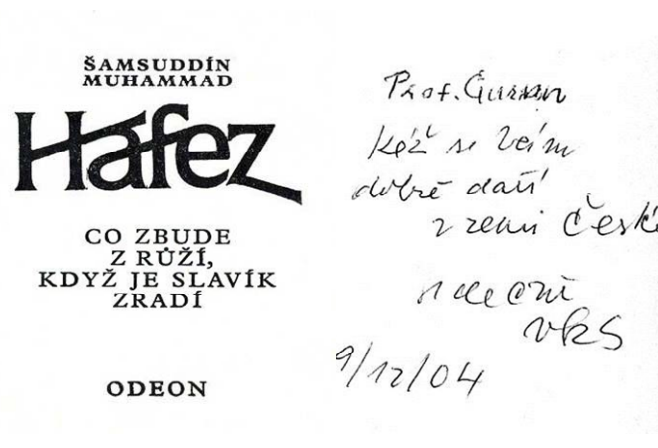 ŠAMSUDDÍN
MUHAMMAD
Háfez
CO ZBUDE
Z RŮŽÍ,
KDYŽ JE SLAVÍK
ZRADÍ
ODEON
Prof.
Kéž se Vám
dobře daří
v zemi České
srdečně
VKS
9/12/04